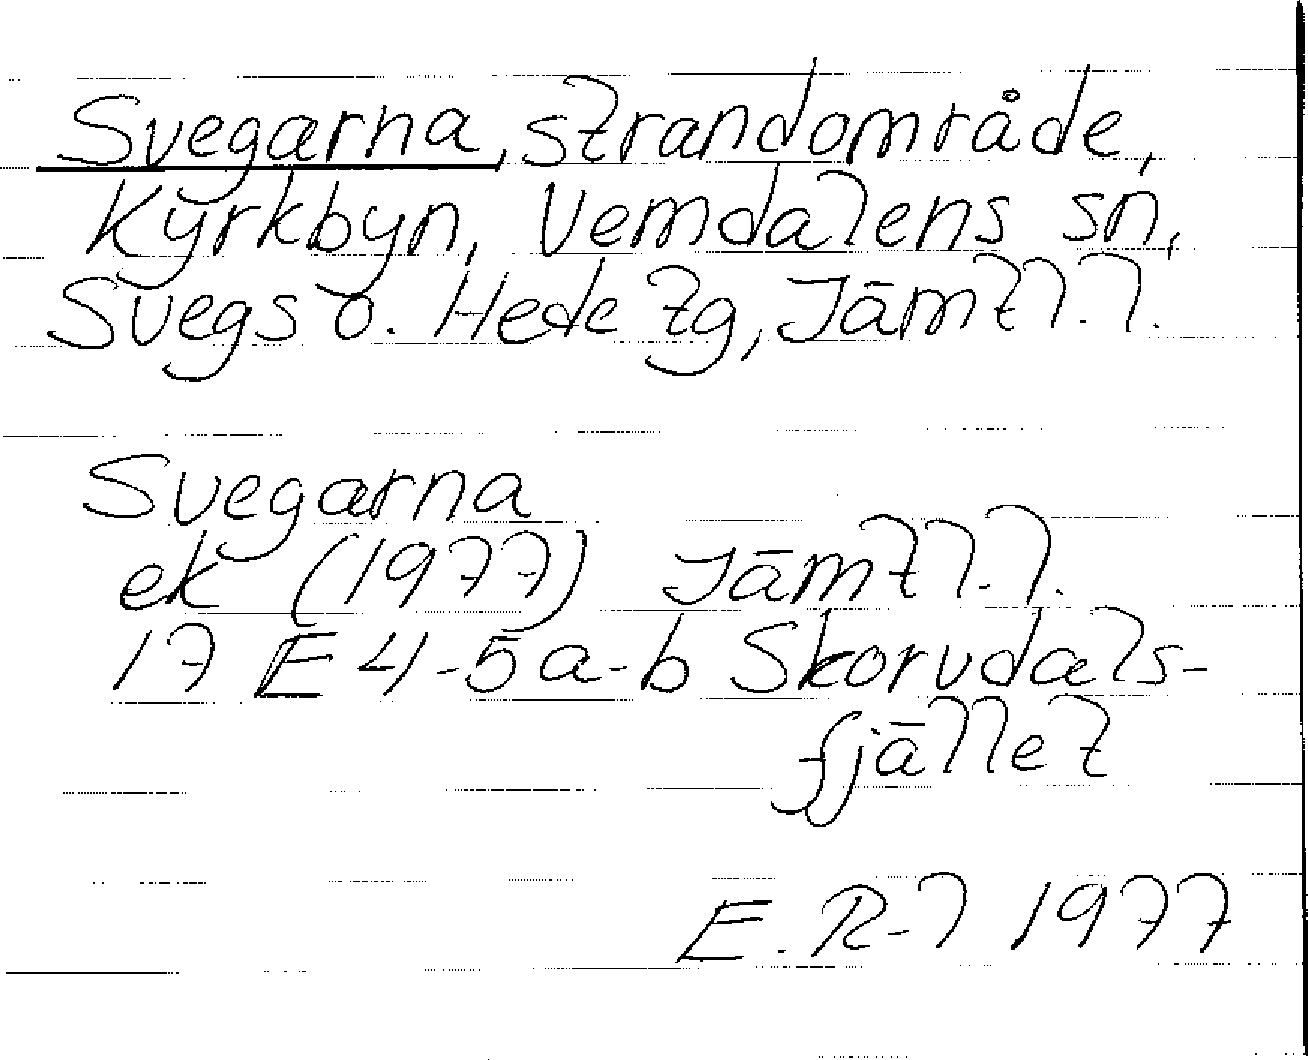 Svegarna, strandområde,
Kyrkbyn, Vemdalens sn,
Svegs o. Hede tg, Jämtl. l.
Svegarna
ek (1977) Jämtl. l.
17 E 4-5 a-b Skorvdals-
fjället
E. R-l 1977